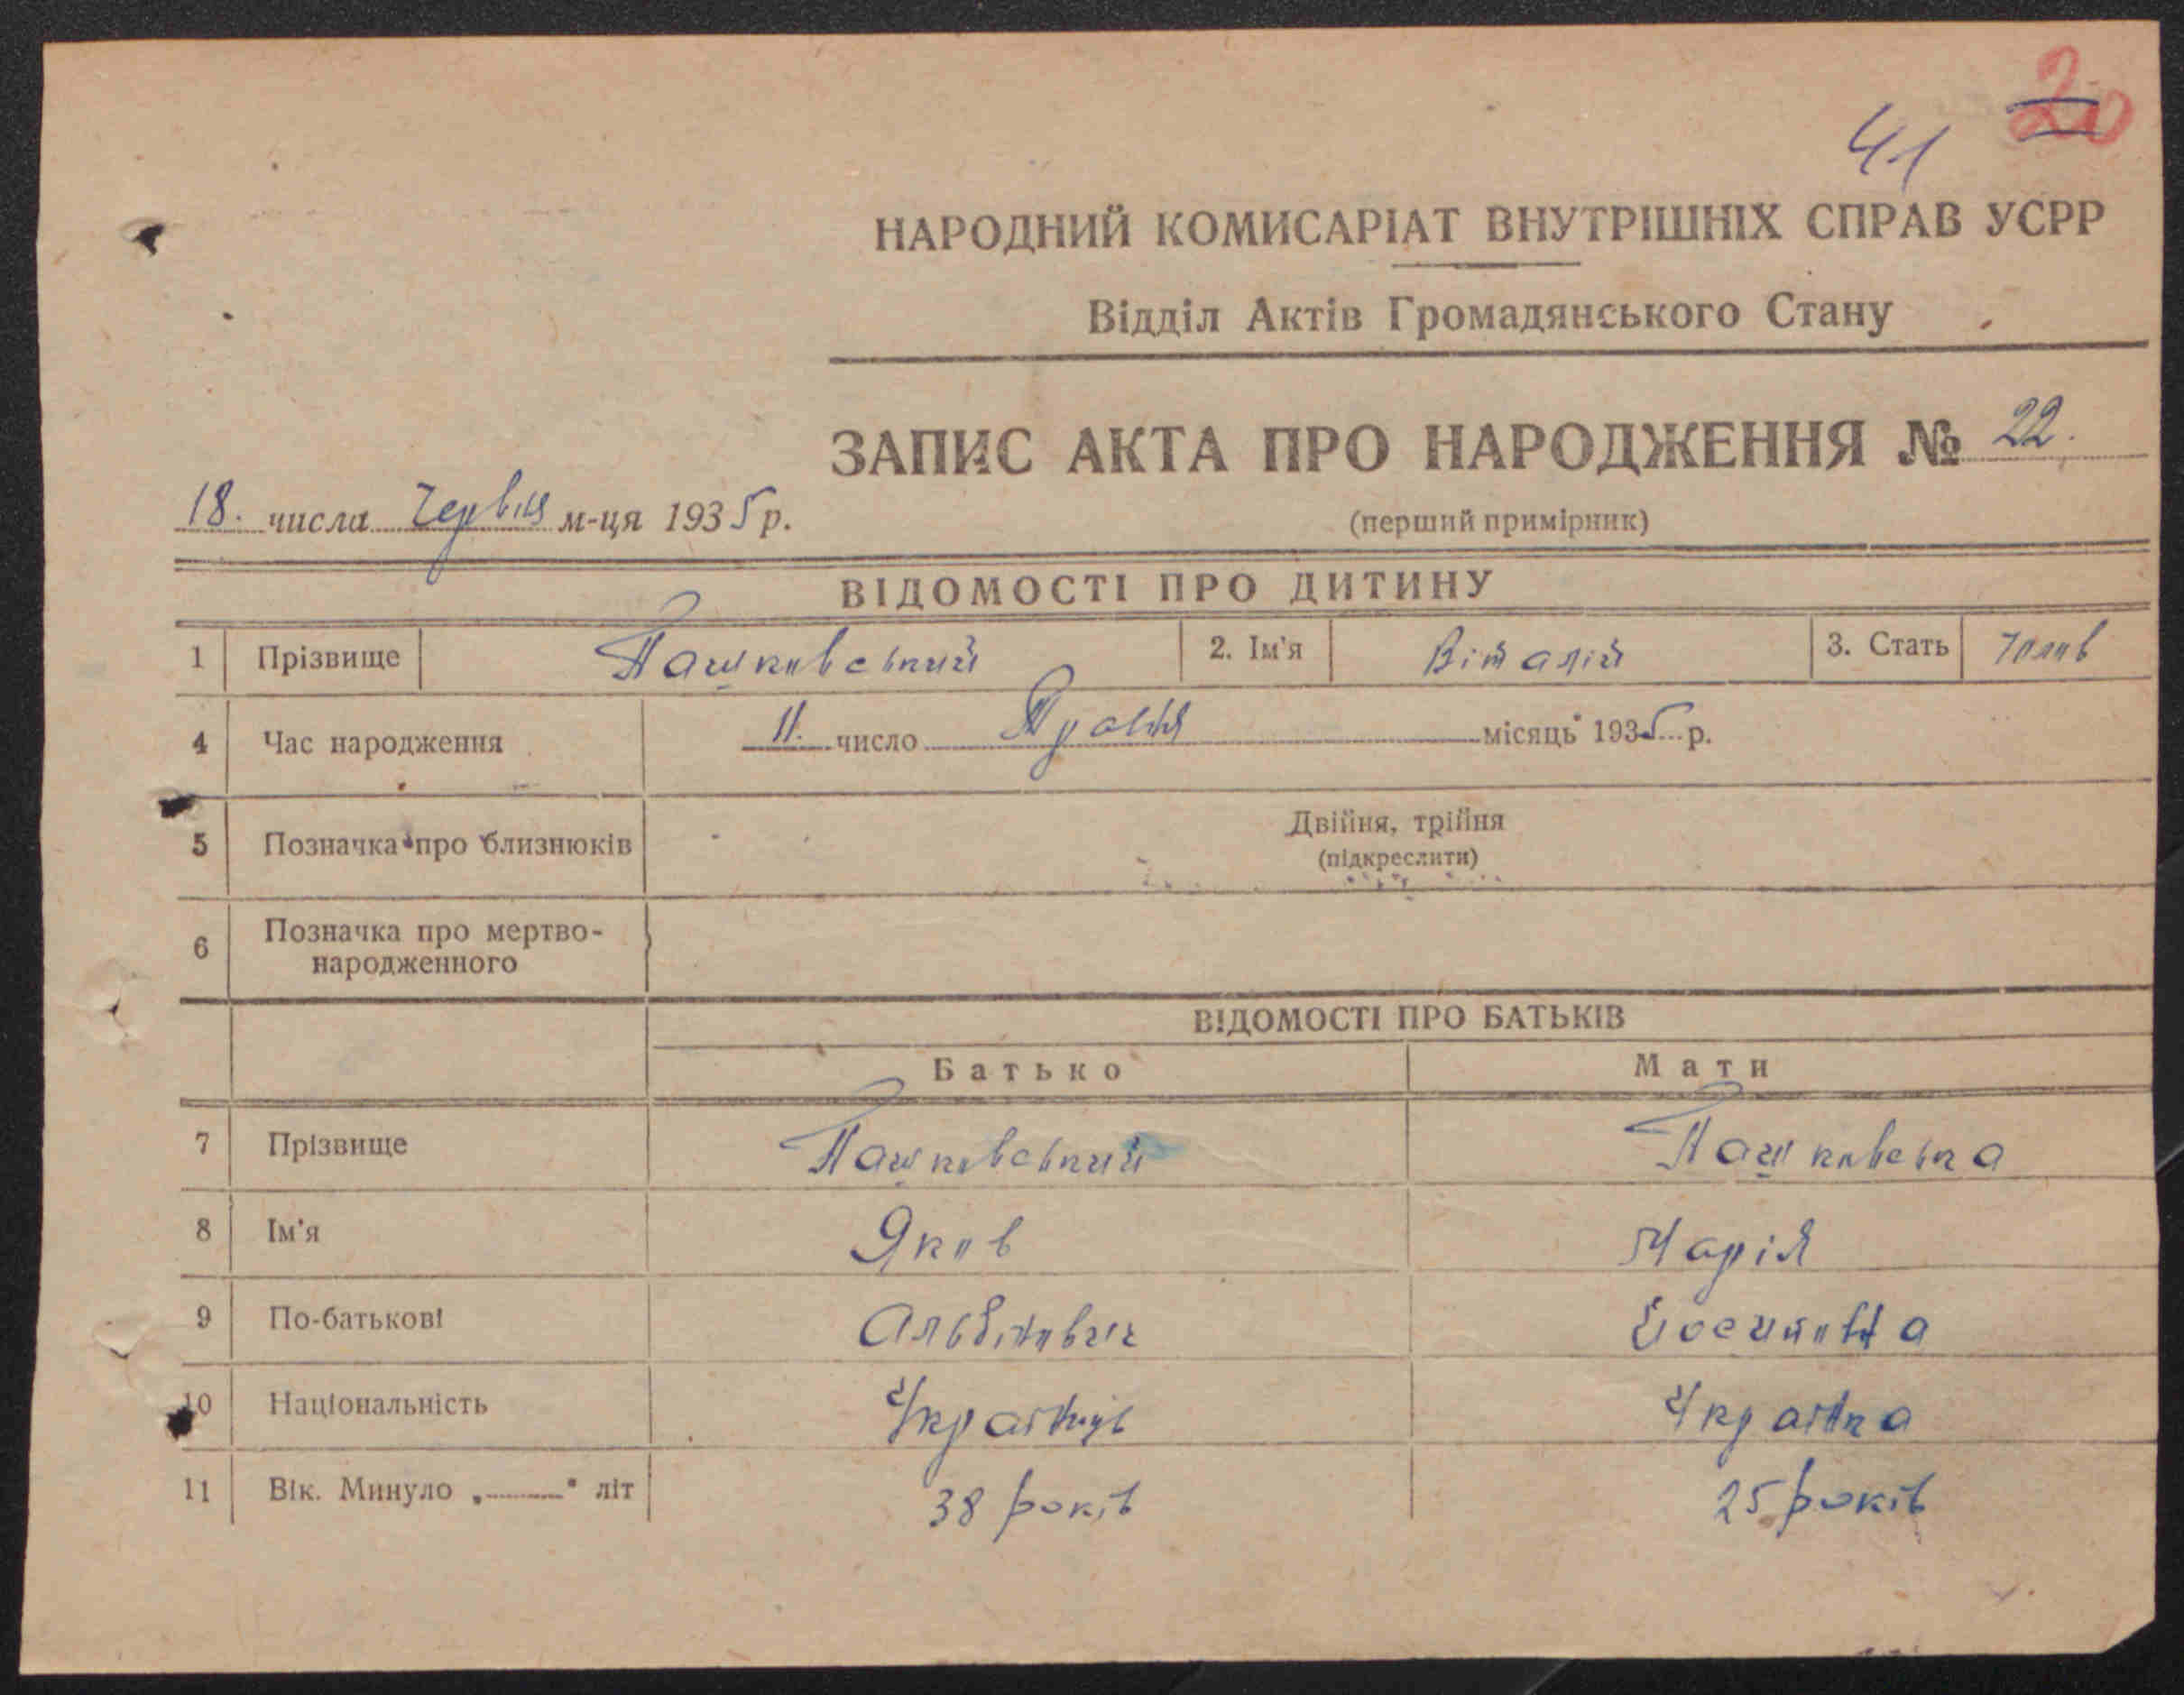 20
41
НАРОДНИЙ КОМИСАРІАТ ВНУТРІШНІХ СПРАВ УСРР
Відділ Актів Громадянського Стану
ЗАПИС АКТА ПРО НАРОДЖЕННЯ № 22.
18. числа Червня м-ця 1935 р.
(перший примірник)
ВІДОМОСТІ ПРО ДИТИНУ
1 Прізвище Пашковський 2. Ім'я Віталій 3. Стать Чолов
4 Час народження 11. число Травня місяць 1935 р.
5 Позначка про близнюків Двійня, трійня
(підкреслити)
6 Позначка про мертво-
народженного
ВІДОМОСТІ ПРО БАТЬКІВ
Батько Мати
7 Прізвище Пашковський Пашковська
8 Ім'я Яков Марія
9 По-батькові Альбінович Йосипівна
10 Національність Українець Українка
11 Вік. Минуло „——" літ 38 років 25 років